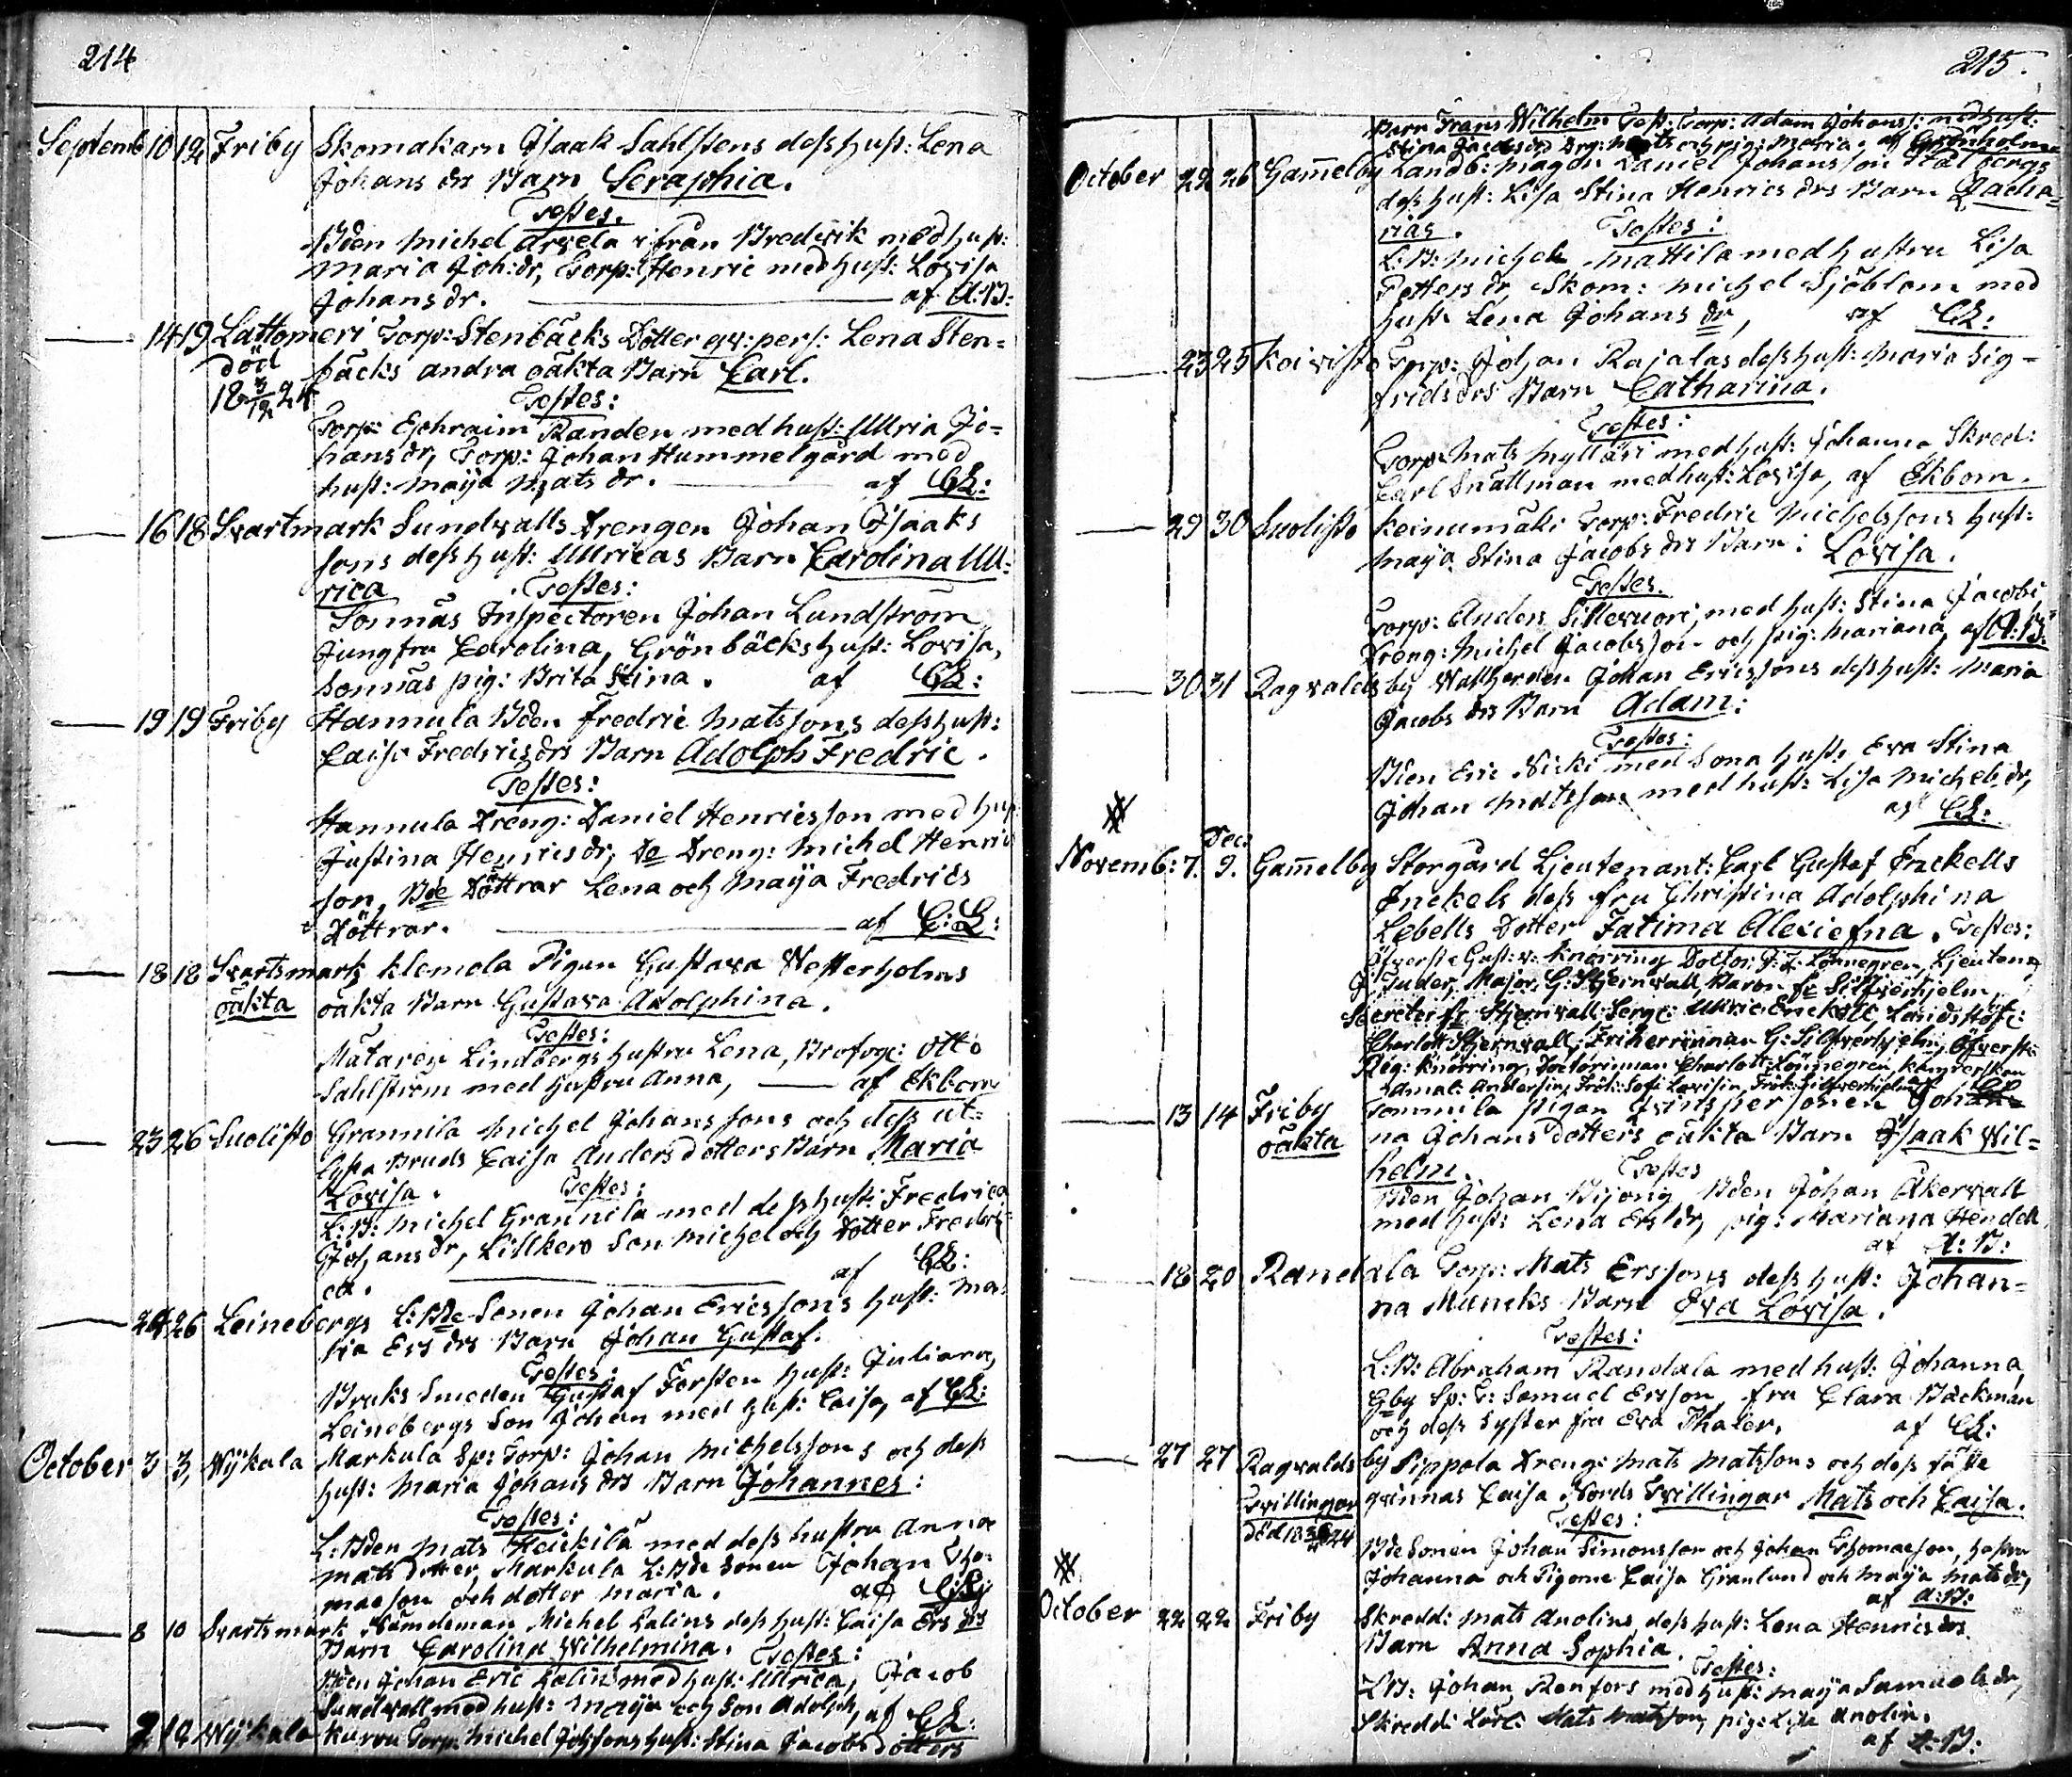 214
Septemb 10 12 Friby Skomakarn Isaak Sahlstens dess hust: Lena
Johans dr Barn Seraphia.
Testes.
Bden Michel Arvela ifrån Bredvik med hust:
Maria Joh: dr, Torp: Henric med hust: Lovisa
Johans dr. af A:B:
14 19 Lattomeri Torp: Stenbäcks Dotter qv: pers: Lena Sten=
död bäcks andra oäkta Barn Carl.
18 3/12 24 Testes:
Torp: Ephraim Randen med hust: Ulrica Jo=
hans dr, Torp: Johan Hummelgård med
hust: Maija Mats dr. af CL:
16 18 Svartmark Sundvalls Drengen Johan Isaaks
sons dess hust: Ulricas Barn Carolina Ul=
rica Testes:
Sonnäs Inspectoren Johan Lundström
Jungfru Carolina, Grönbäcks hust: Lovisa,
Sonnäs pig: Brita Stina. af CL:
19 19 Friby Hannula Bden Fredric Matssons dess hust:
Caisa Fredrics drs Barn Adolph Fredric.
Testes:
Hannula Dreng: Daniel Henricsson med hust
Justina Henrics dr, De Dreng: Michel Henric
son, Bde Döttrar Lena och Maija Fredrics
Döttrar. af C:L:
18 18 Svartsmark Klemola Pigan Gustava Westerholms
oäkta oäkta Barn Gustava Adolphina.
Testes:
Mataren Lindbergs hustru Lena, Profoge: Otto
Sahlström med hustru Anna, af Ekbom
23 26 Suolisto Grannila Michel Johanssons och dess ut=
lysta Bruds Caisa Anders dotters Barn Maria
Lovisa. Testes:
L:B: Michel Grannila med dess hust: Fredrica
Johans dr, Lillkero Son Michel och Dotter Fredri=
ca. af CL:
24 26 Leinebergs L:Bde Sonen Johan Ericssons hust: Ma=
ria Ers drs Barn Johan Gustaf.
Testes:
Bruks Smeden Gustaf Forsten hust: Juliana,
Leinebergs Son Johan med hust: Caisa, af CL:
October 3 3, Wijkala Markula Sp: Torp: Johan Michelssons och dess
hust: Maria Johans drs Barn Johannes:
Testes:
L: Bden Mats Heickilä med dess hustru Anna
Mats dotter, Markula L:Bde Sonen Johan Tho=
masson och dotter Maria. af CL:
8 10 Svartsmark Nämdeman Michel Kalins dess hust: Caisa Ers drs
Barn Carolina Wilhelmina. Testes:
Bden Johan Eric Kalin med hust: Ulrica, Jacob
Sundvall med hust: Maija och Son Adolph, af CL:
9 12 Wijkala Kurvu Torp: Michel Johssons hust: Stina Jacobs dotters
215.
Barn Frans Wilhelm Test: Torp: Adam Johanss: med hust:
Stina Jacobs dr Drg: Mats och pig: Maria. af Grönholm
October 22 26 Gam̄elby Landb: mågen Daniel Johansson Stålbergs
dess hust: Lisa Stina Henrics drs Barn Zacha=
rias. Testes:
L:B: Michel Mattila med hustru Lisa
Petters dr, Skom: Michel Sjöblom med
hust: Lena Johans dr, af CL:
23 25 Koivisto Torp: Johan Rajalas dess hust: Maria Sig=
frids drs Barn Catharina.
Testes:
Torp: Mats Myllari med hust: Johanna, Skred:
Carl Snällman med hust: Lovisa, af Ekbom.
29 30 Suolisto Keinumäki Torp: Fredric Michelssons hust:
Maija Stina Jacobs drs Barn: Lovisa.
Testes.
Torp: Anders Sillevuori, med hust: Stina Jacobs
Dreng: Michel Jacobsson och pig: Mariana, af A:B:
30 31 Ragvaldsby Walherden Johan Ericssons dess hust: Maria
Jacobs drs Barn Adam:
Testes:
Bden Eric Nicki med Sona hust: Eva Stina
Johan Matsson med hust: Lisa Michels dr,
af CL:
Dec:
Novemb: 7. 9. Gam̄elby Storgård Lieutenant: Carl Gustaf Enckells
Enckels dess fru Christina Adolphina
Lebells Dotter Fatima Alexiefna. Testes:
Öfverste Gust: v: Knorring Doctor: J: J: Lönnegren, Lieutena
J Tuder, Major: G: Stjernvall, Baron fr Silfverhjelm,
Secreter fr Stjernvall Serge: Ulric Enckell, Landshöfd:
Charlott Stjernvall, Friherrinnan G: Silfverhjelm, Öfverst:
Reg: Knorring, Doctorinnan Charlott Lönnegren, Kamrerskan
Amal: Andersin, Frök: Sofi Lovisin, Frök: Silfverhjelm CL
13 14 Friby Tommila Pigan Jvinspersonen Johan=
oäkta na Johans dotters oäkta Barn Isaak Wil=
helm. Testes
Bden Johan Bijong, Bden Johan Åkervall
med hust: Lena Ers dr, pig: Mariana Hendell
af A:B:
18 20 Randala Torp: Mats Erssons dess hust: Johan=
na Muncks Barn Eva Lovisa.
Testes:
L:B: Abraham Randala med hust: Johanna,
Gby Sp: T: Samuel Ersson, fru Clara Backman
och dess Syster fru Eva Thaler. af CL:
27 27 Ragvaldsby Sippola Dreng: Mats Matssons och dess fäste
Tvillingar qvinnas Caisa Nords Tvillingar Mats och Caisa.
Testes:
Bde Sonen Johan Simonsson och Johan Thomasson, hustru
Johanna och Pigorne Caisa Granlund och Maija Mats dr,
af A:B:
October 22 22 Friby Skredd: Mats Anolins dess hust: Lena Henrics drs
Barn Anna Sophia. Testes:
LB: Johan Renfors med hust: Maija Samuels dr,
Skredd: Lärl: Mats Matsson, pig: Lisa Anolin.
af A:B: